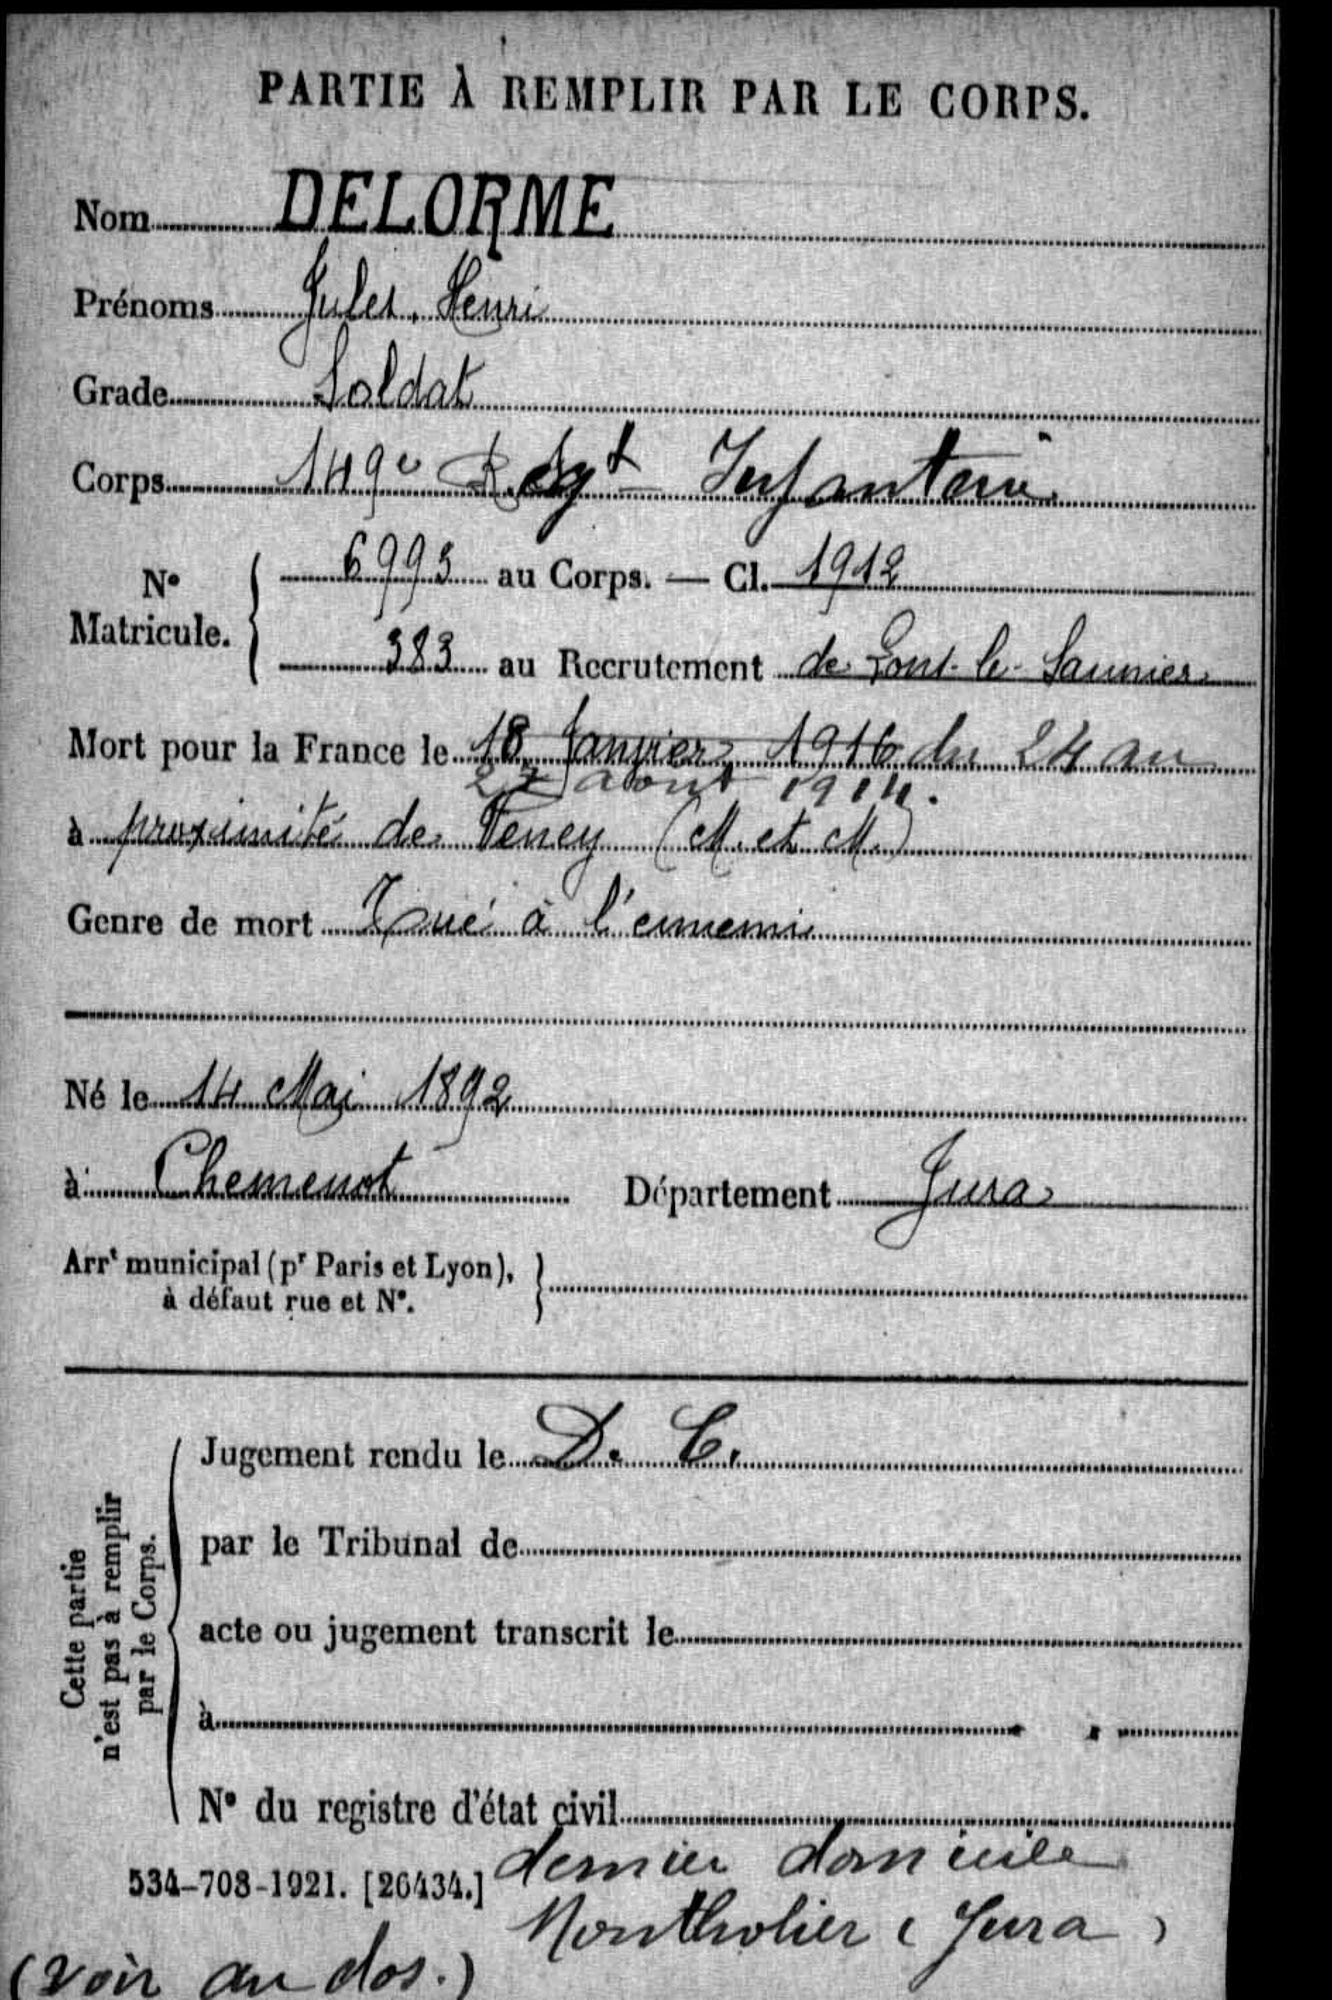 PARTIE À REMPLIR PAR LE CORPS.
Nom DELORME
Prénoms Jules, Henri
Grade Soldat
Corps 149e Regt Infanterie
No Matricule. 6993 au Corps. — Cl. 1912
383 au Recrutement de Lons-le-Saunier
Mort pour la France le 18 Janvier 1916 du 24 au
27 aout 1914.
à proximité de Veney (M. et M.)
Genre de mort Tué à l'ennemi
Né le 14 Mai 1892
à Chemenot Département Jura
Arrt municipal (pr Paris et Lyon),
à défaut rue et No.
Cette partie
n'est pas à remplir
par le Corps.
Jugement rendu le D. C.
par le Tribunal de
acte ou jugement transcrit le
à
No du registre d'état civil
534-708-1921. [26434.] dernier domicile
Montholier (Jura)
(voir au dos.)